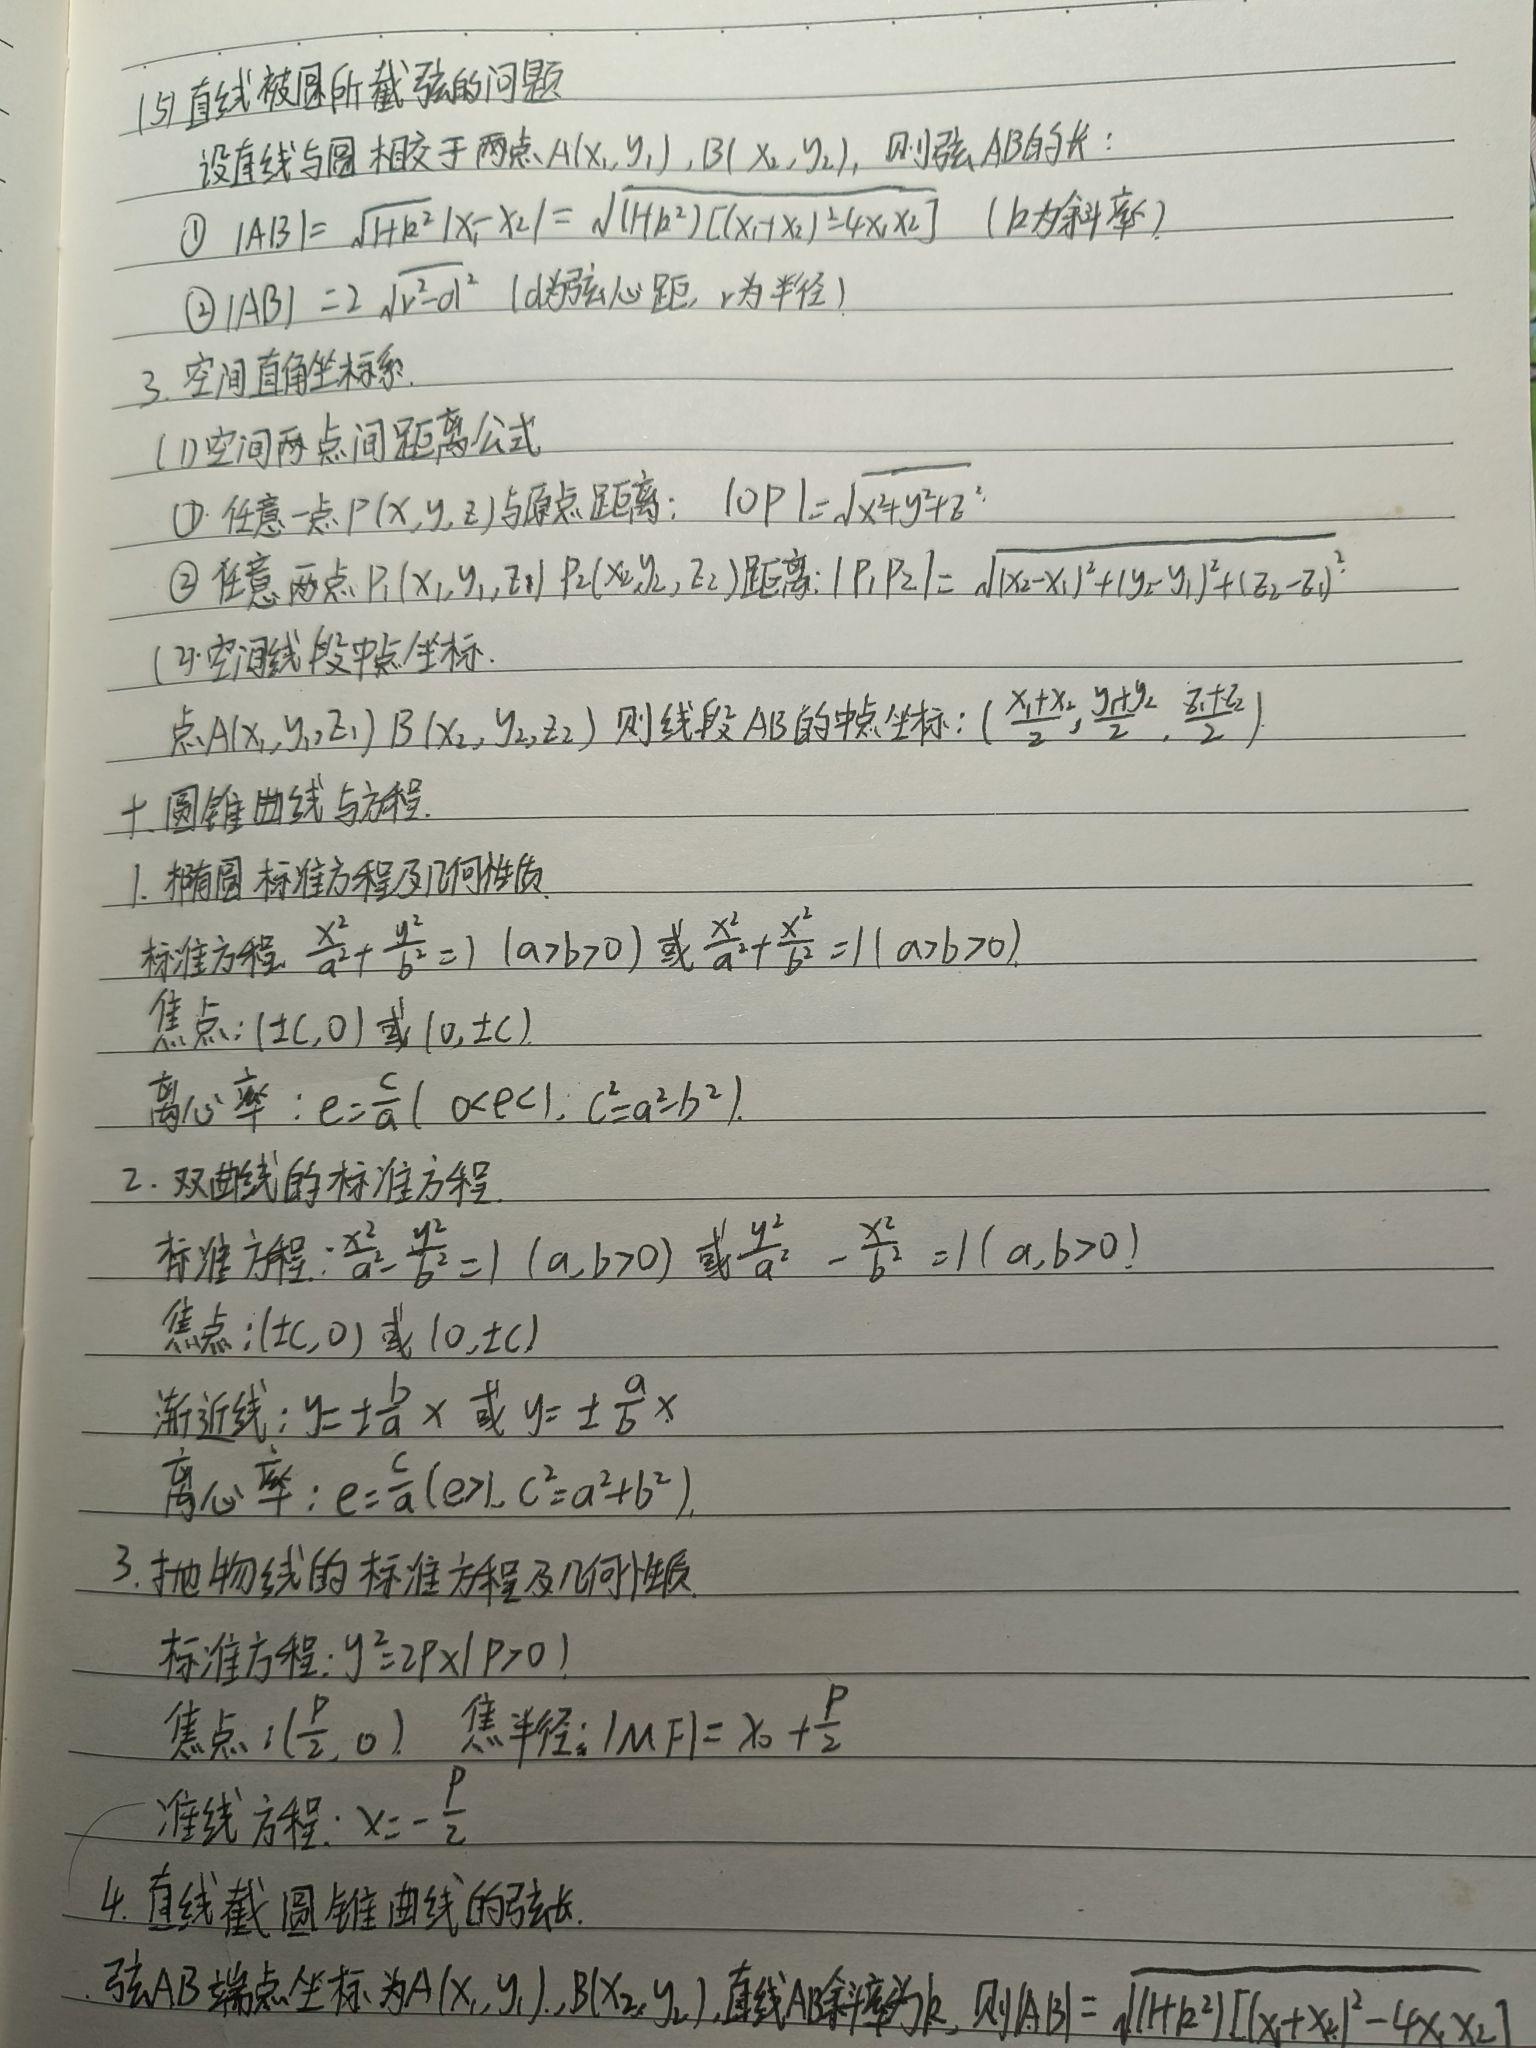 (5)直线被圆所截弦的问题
设直线与圆相交于两点A(x₁,y₁),B(x₂,y₂),则弦AB的长:
① |AB|=√(1+k²)|x₁-x₂|=√((1+k²)[(x₁+x₂)²-4x₁x₂]) (k为斜率)
②|AB|=2√(r²-d²) (d为弦心距,r为半径)
3.空间直角坐标系.
(1)空间两点间距离公式
①.任意一点P(x,y,z)与原点距离: |OP|=√(x²+y²+z²)
②任意两点P₁(x₁,y₁,z₁)P₂(x₂,y₂,z₂)距离:|P₁P₂|=√((x₂-x₁)²+(y₂-y₁)²+(z₂-z₁)²)
(2).空间线段中点坐标.
点A(x₁,y₁,z₁)B(x₂,y₂,z₂)则线段AB的中点坐标:((x₁+x₂)/2,(y₁+y₂)/2,(z₁+z₂)/2)
十.圆锥曲线与方程.
1.椭圆标准方程及几何性质.
标准方程 x²/a²+y²/b²=1 (a>b>0)或x²/a²+x²/b²=1(a>b>0).
焦点:(±c,0)或(0,±c).
离心率:e=c/a(0<e<1,c²=a²-b²).
2.双曲线的标准方程.
标准方程:x²/a²-y²/b²=1 (a,b>0)或y²/a²-x²/b²=1(a,b>0)
焦点:(±c,0)或(0,±c)
渐近线:y=±b/a x 或 y=±a/b x
离心率:e=c/a(e>1,c²=a²+b²).
3.抛物线的标准方程及几何性质.
标准方程:y²=2px(p>0)
焦点:(p/2,0) 焦半径:|MF|=x₀+p/2
准线方程:x=-p/2
4.直线截圆锥曲线的弦长.
弦AB端点坐标为A(x₁,y₁),B(x₂,y₂),直线AB斜率为k,则|AB|=√((1+k²)[(x₁+x₂)²-4x₁x₂]